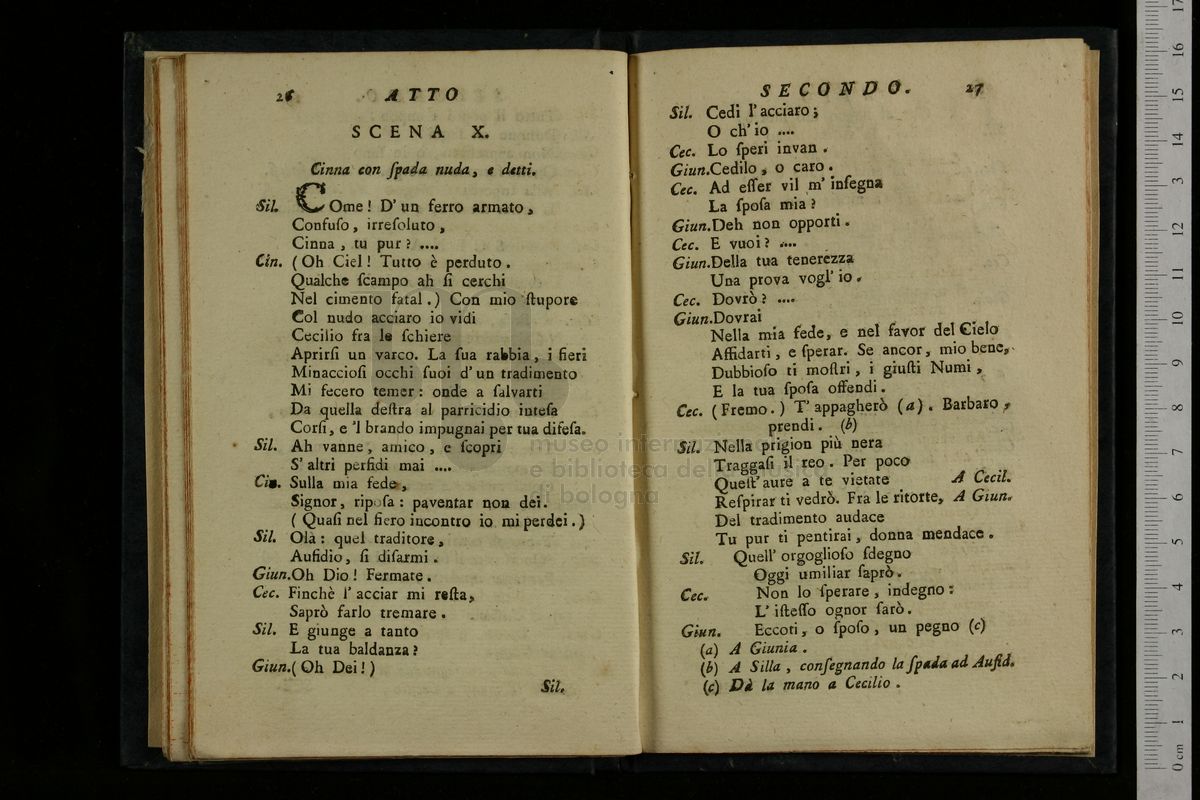 26 ATTO
SCENA X.
Cinna con ſpada nuda, e detti.
Sil. COme! D' un ferro armato,
Confuſo, irreſoluto,
Cinna, tu pur? ....
Cin. (Oh Ciel! Tutto è perduto.
Qualche ſcampo ah ſi cerchi
Nel cimento fatal.) Con mio ſtupore
Col nudo acciaro io vidi
Cecilio fra le ſchiere
Aprirſi un varco. La ſua rabbia, i fieri
Minaccioſi occhi ſuoi d' un tradimento
Mi fecero temer: onde a ſalvarti
Da quella deſtra al parricidio inteſa
Corſi, e 'l brando impugnai per tua difeſa.
Sil. Ah vanne, amico, e ſcopri
S' altri perfidi mai ....
Cin. Sulla mia fede,
Signor, ripoſa: paventar non dei.
(Quaſi nel fiero incontro io mi perdei.)
Sil. Olà: quel traditore,
Aufidio, ſi diſarmi.
Giun. Oh Dio! Fermate.
Cec. Finchè l' acciar mi reſta,
Saprò farlo tremare.
Sil. E giunge a tanto
La tua baldanza?
Giun. (Oh Dei!)
Sil.
SECONDO. 27
Sil. Cedi l' acciaro;
O ch' io ....
Cec. Lo ſperi invan.
Giun. Cedilo, o caro.
Cec. Ad eſſer vil m' inſegna
La ſpoſa mia?
Giun. Deh non opporti.
Cec. E vuoi? ....
Giun. Della tua tenerezza
Una prova vogl' io.
Cec. Dovrò? ....
Giun. Dovrai
Nella mia fede, e nel favor del Cielo
Affidarti, e ſperar. Se ancor, mio bene,
Dubbioſo ti moſtri, i giuſti Numi,
E la tua ſpoſa offendi.
Cec. (Fremo.) T' appagherò (a). Barbaro,
prendi. (b)
Sil. Nella prigion più nera
Traggaſi il reo. Per poco
Queſt' aure a te vietate A Cecil.
Reſpirar ti vedrò. Fra le ritorte, A Giun.
Del tradimento audace
Tu pur ti pentirai, donna mendace.
Sil. Quell' orgoglioſo ſdegno
Oggi umiliar ſaprò.
Cec. Non lo ſperare, indegno:
L' iſteſſo ognor ſarò.
Giun. Eccoti, o ſpoſo, un pegno (c)
(a) A Giunia.
(b) A Silla, conſegnando la ſpada ad Aufid.
(c) Dà la mano a Cecilio.
museo internazionale
e biblioteca della musica
di bologna
0 cm 1 2 3 4 5 6 7 8 9 10 11 12 13 14 15 16 17